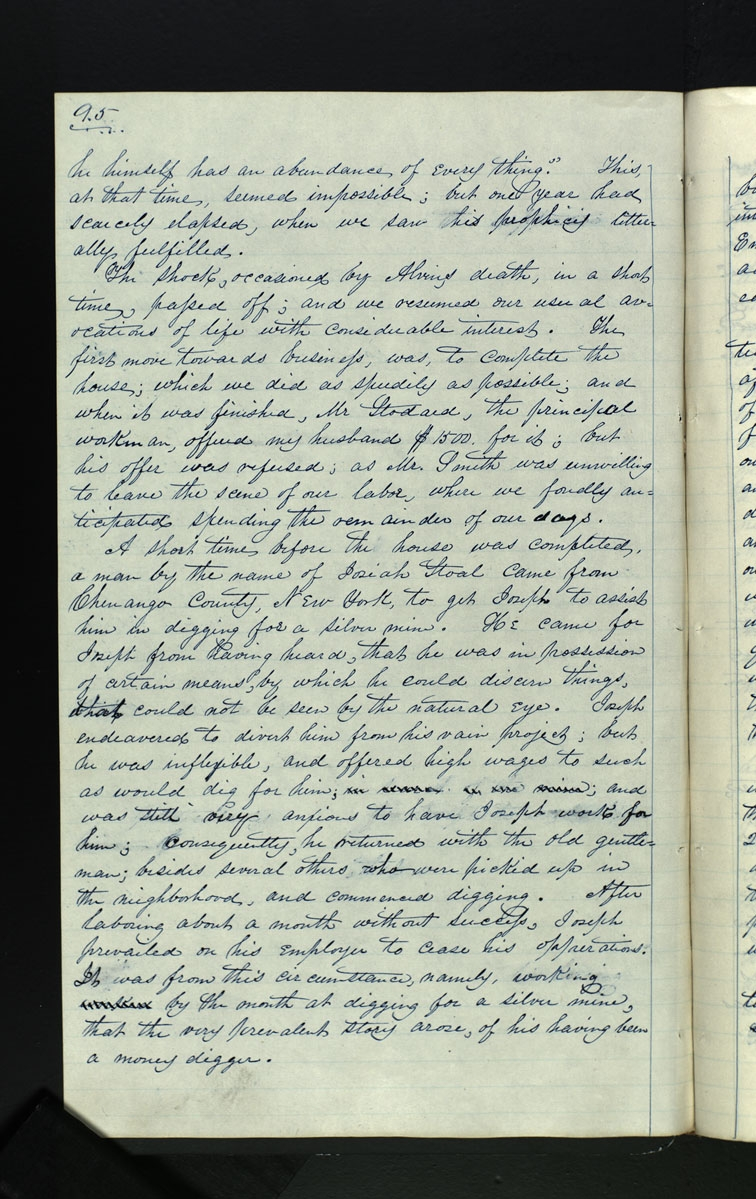 95
he himself has an abundance of every thing." This,
at that time, seemed impossible; but one year had
scarcely elapsed, when we saw his prophecy litter-
ally fulfilled.
The shock, occasioned by Alvins death, in a short
time, passed off; and we resumed our usual av=
ocations of life with considerable interest. The
first move towards business, was, to complete the
house; which we did as speedily as possible; and
when it was finished, Mr Stodard, the principal
workman, offered my husband $1500. for it; but
his offer was refused; as Mr. Smith was unwilling
to leave the scene of our labor, where we fondly an=
ticipated spending the remainder of our days.
A short time before the house was completed,
a man by the name of Josiah Stoal came from
Chenango County, New York, to get Joseph to assist
him in digging for a silver mine. He came for
Joseph from having heard, that he was in possession
of certain means, by which he could discern things,
that could not be seen by the natural eye. Joseph
endeavered to divert him from his vain project; but
he was inflexible, and offered high wages to such
as would dig for him; in mine; and
was still very anxious to have Joseph work for
him; consequently, he returned with the old gentle=
man; besides several others who were picked up in
the neighborhood, and commenced digging. After
laboring about a month without success, Joseph
prevailed on his employer to cease his opperations.
It was from this circumstance, namely, working
by the month at digging for a silver mine,
that the very prevalent story arose, of his having been
a money digger.